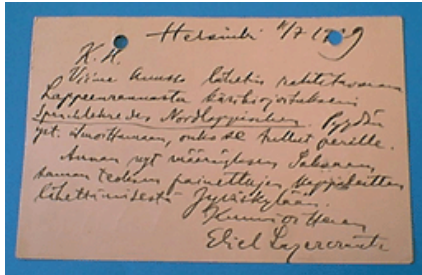 Helsinki 11/7 1929
K. H.
Viime kuussa lähetin rahtitavarana
Lappeenrannasta käsikirjoitukseni
Sprachlehre des Nordlappischen. Pyydän
ilmoittamaan, onko se tullut perille.
Annan nyt määräyksen Saksaan,
saman teoksen painettujen
lähettämisestä Jyväskylään.
Kunnioittaen
Eliel Lagercrantz